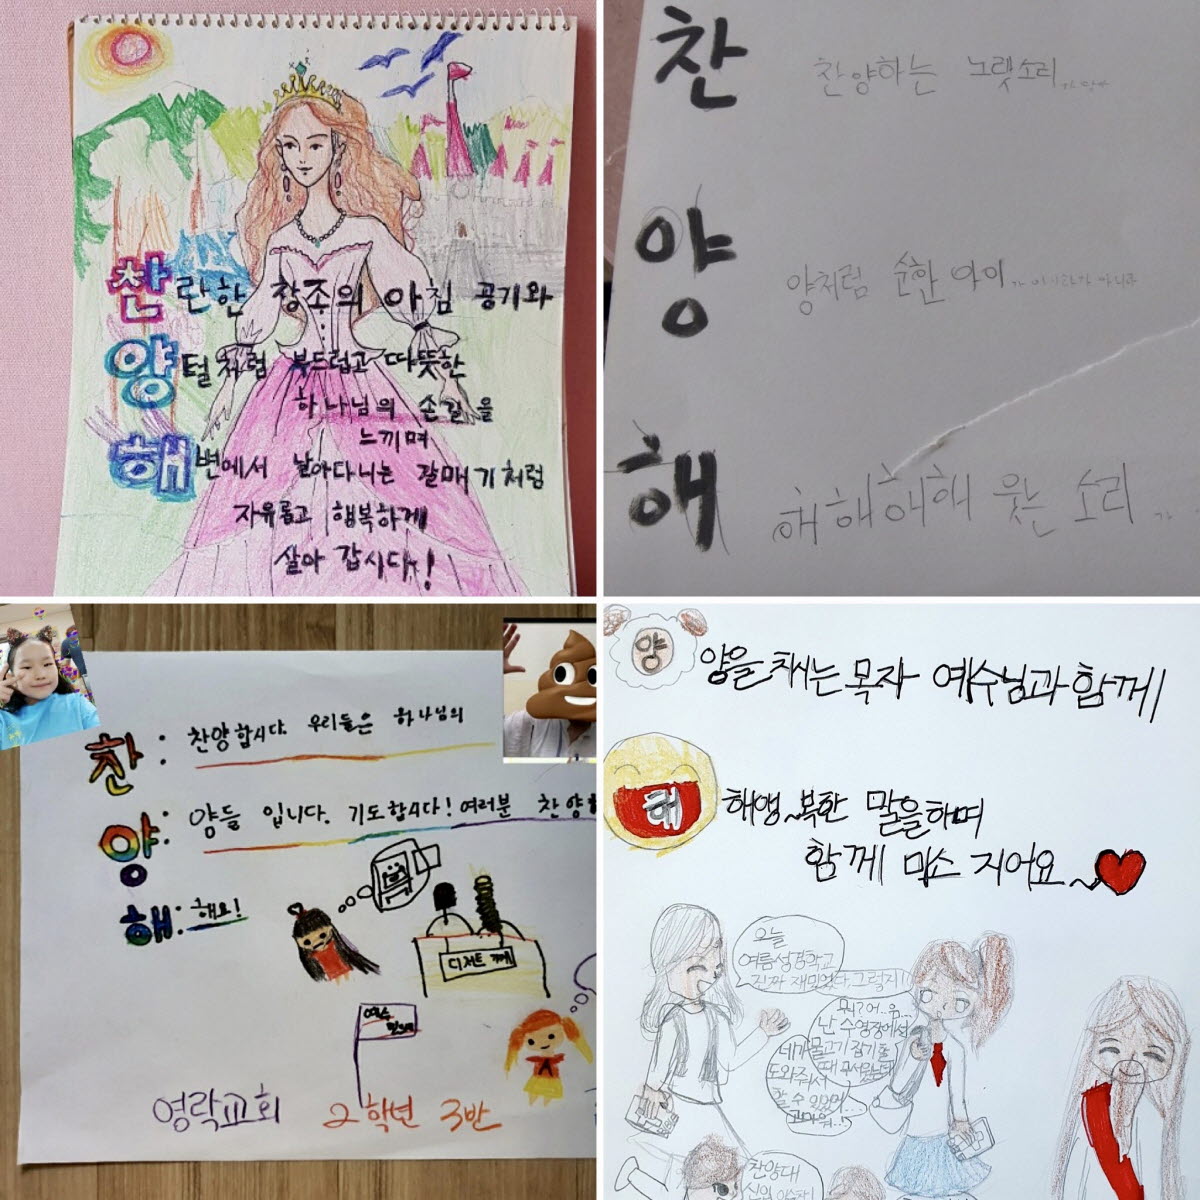 찬란한 창조의 아침 공기와
양털처럼 부드럽고 따뜻한
하나님의 손길을
느끼며
해변에서 날아다니는 갈매기처럼
자유롭고 행복하게
살아 갑시다!
찬
찬양하는 노랫소리
양
양처럼 순한 아이
해
해해해해 웃는 소리
찬: 찬양합시다. 우리들은 하나님의
양: 양들 입니다. 기도합시다! 여러분 찬양
해: 해요!
디저트 가게
예수
영락교회 2학년 3반
양 양을 치시는 목자 예수님과 함께
해 해앵~복한 말을하며
함께 미소 지어요~
오늘
여름성경학교
진짜 재미있었다, 그렇지!
뭐? 어..응...
난 수영장에서
네가 물고기 잡기 할
때
도와줘서
할 수 있었어...
고마워..!
찬양대